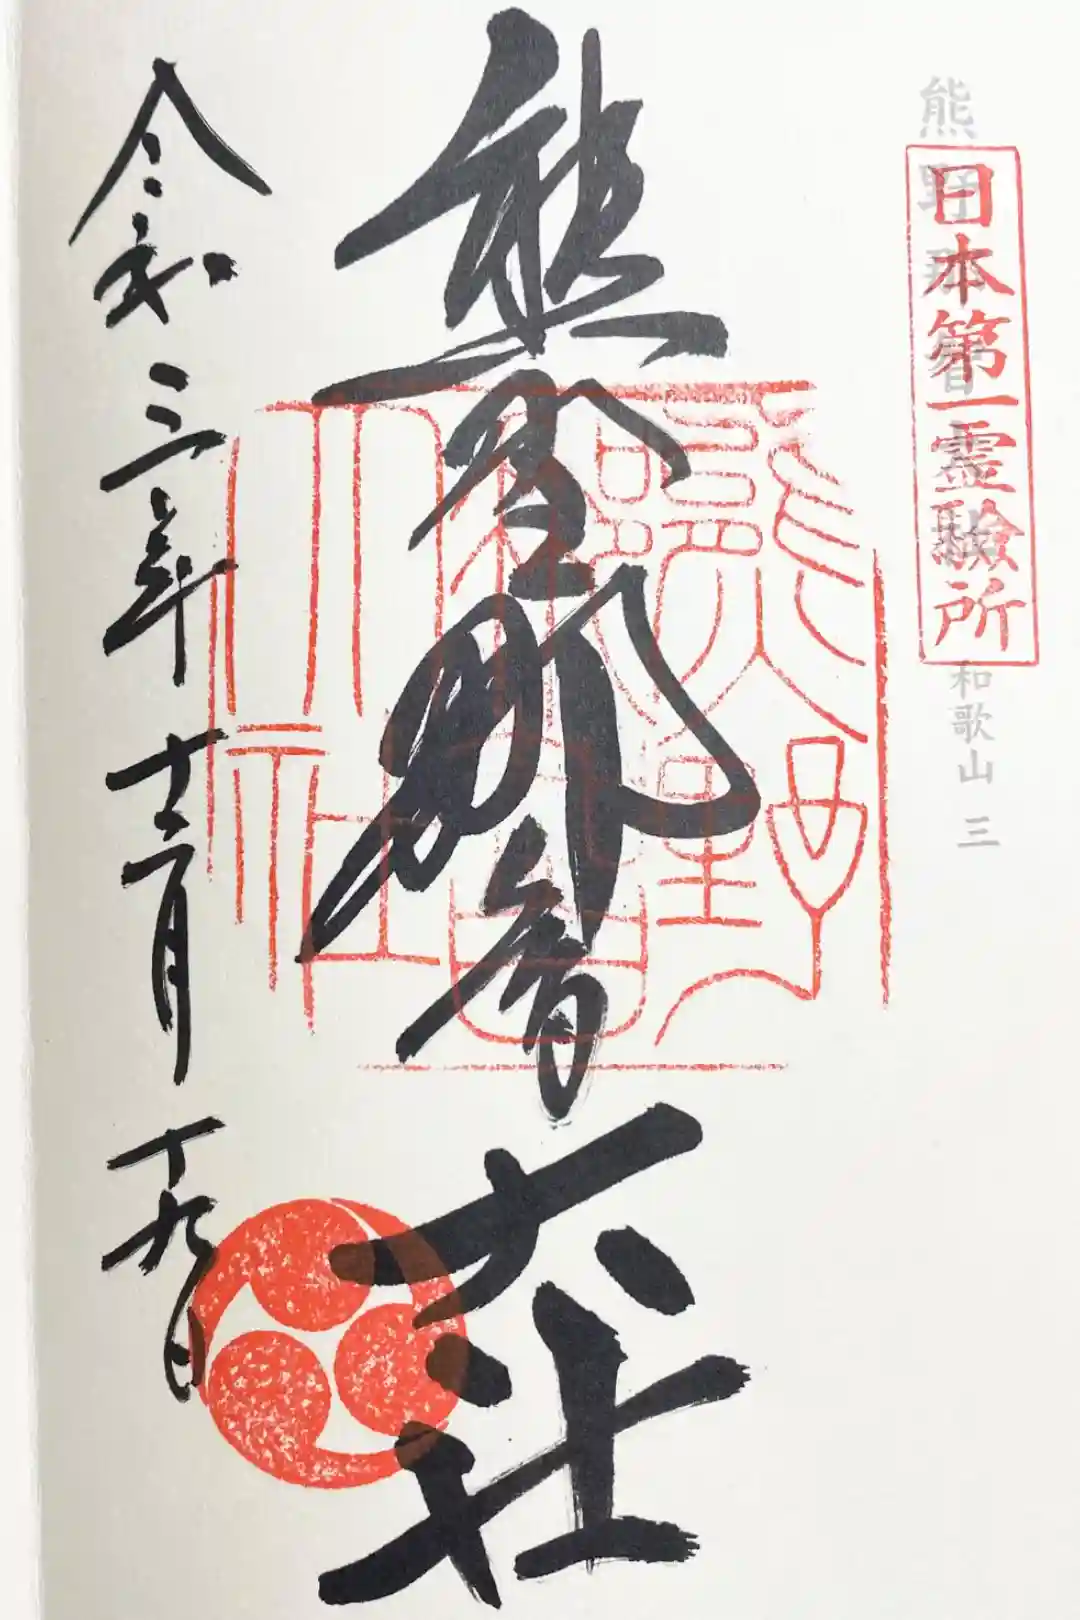 熊野那智大社 和歌山 三
日本第一霊験所
熊野那智大社
令和三年十二月十九日